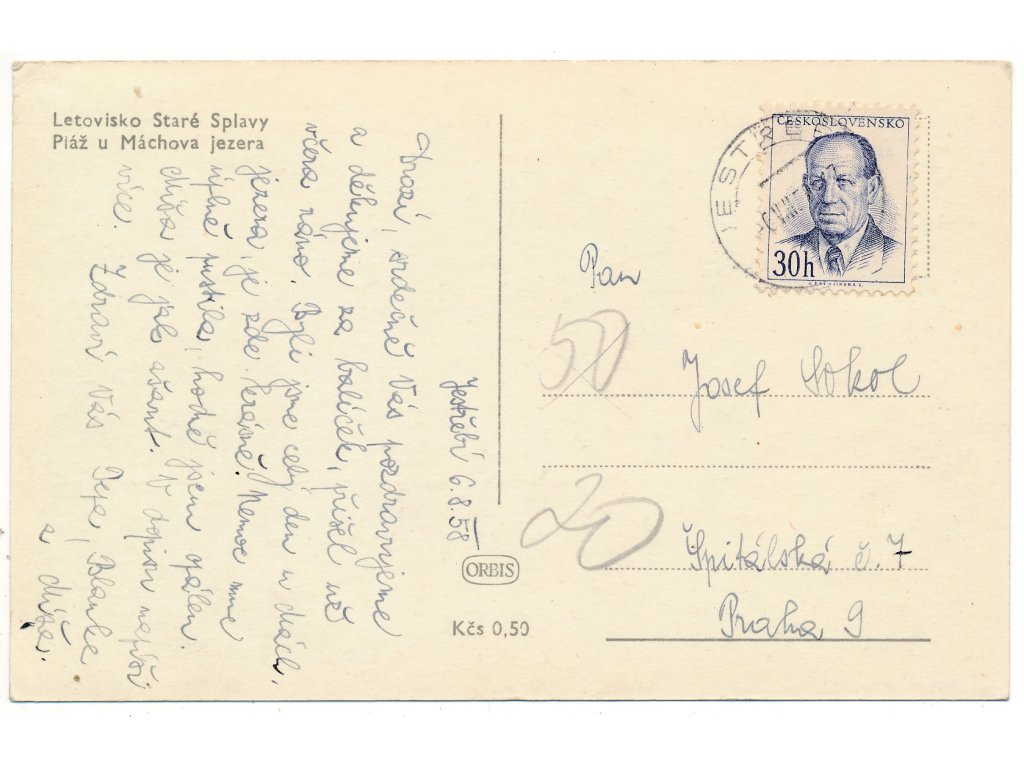 Letovisko Staré Splavy
Pláž u Máchova jezera
Jestřebí 6.8.58
Drazí, srdečně Vás pozdravujeme
a děkujeme za balíček, přišel už
včera ráno. Byli jsme celý den u
jezera, je zde krásně. Nemoc mne
úplně pustila, hodně jsem opálen.
Míša je jak ašant. V dopisu napíši
více. Zdraví Vás Pepa, Blanka
a Míša.
ORBIS
Kčs 0,50
ČESKOSLOVENSKO
30h
JESTŘEB
Pan
50
Josef Sokol
20
Špitálská č. 7
Praha 9